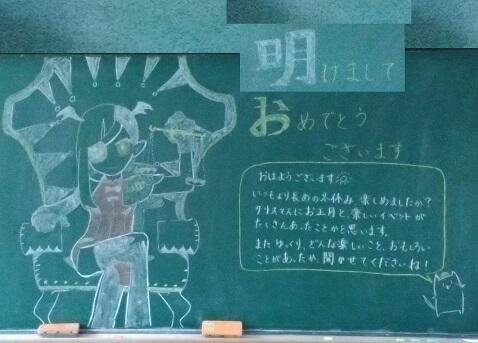 明けまして
おめでとう
ございます
おはようございます
いつもより長めの冬休み、楽しめましたか?
クリスマスにお正月と、楽しいイベントが
たくさんあったことかと思います。
またゆっくり、どんな楽しいこと、おもしろい
ことがあったや、聞かせてくださいね!